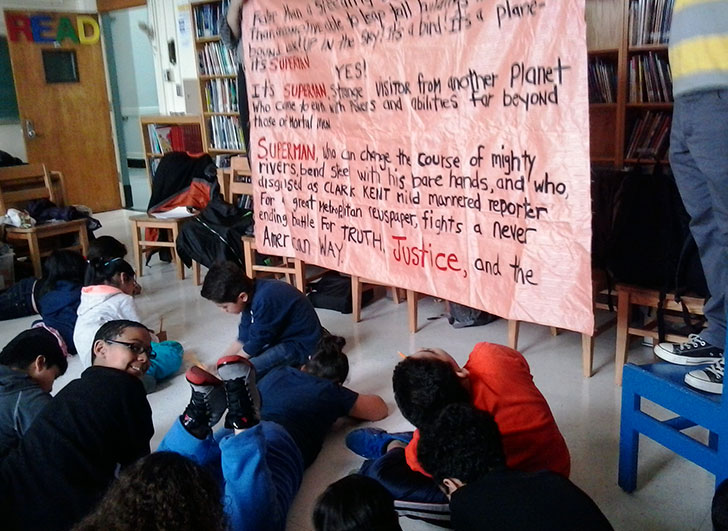 READ
Faster than a speeding
than a locomotive, able to leap tall buildings
bound. Look up IN the sky! It's a bird! It's a plane-
it's SUPERMAN
YES!
It's SUPERMAN, Strange VISITOR from another Planet
Who came to earth with Powers and abilities far beyond
those of Mortal men
SUPERMAN, who can change the course of mighty
rivers, bend steel with his bare hands, and who,
disguised as CLARK KENT mild mannered reporter
For a great metropolitan newspaper, fights a never
ending battle For TRUTH, Justice, and the
American WAY